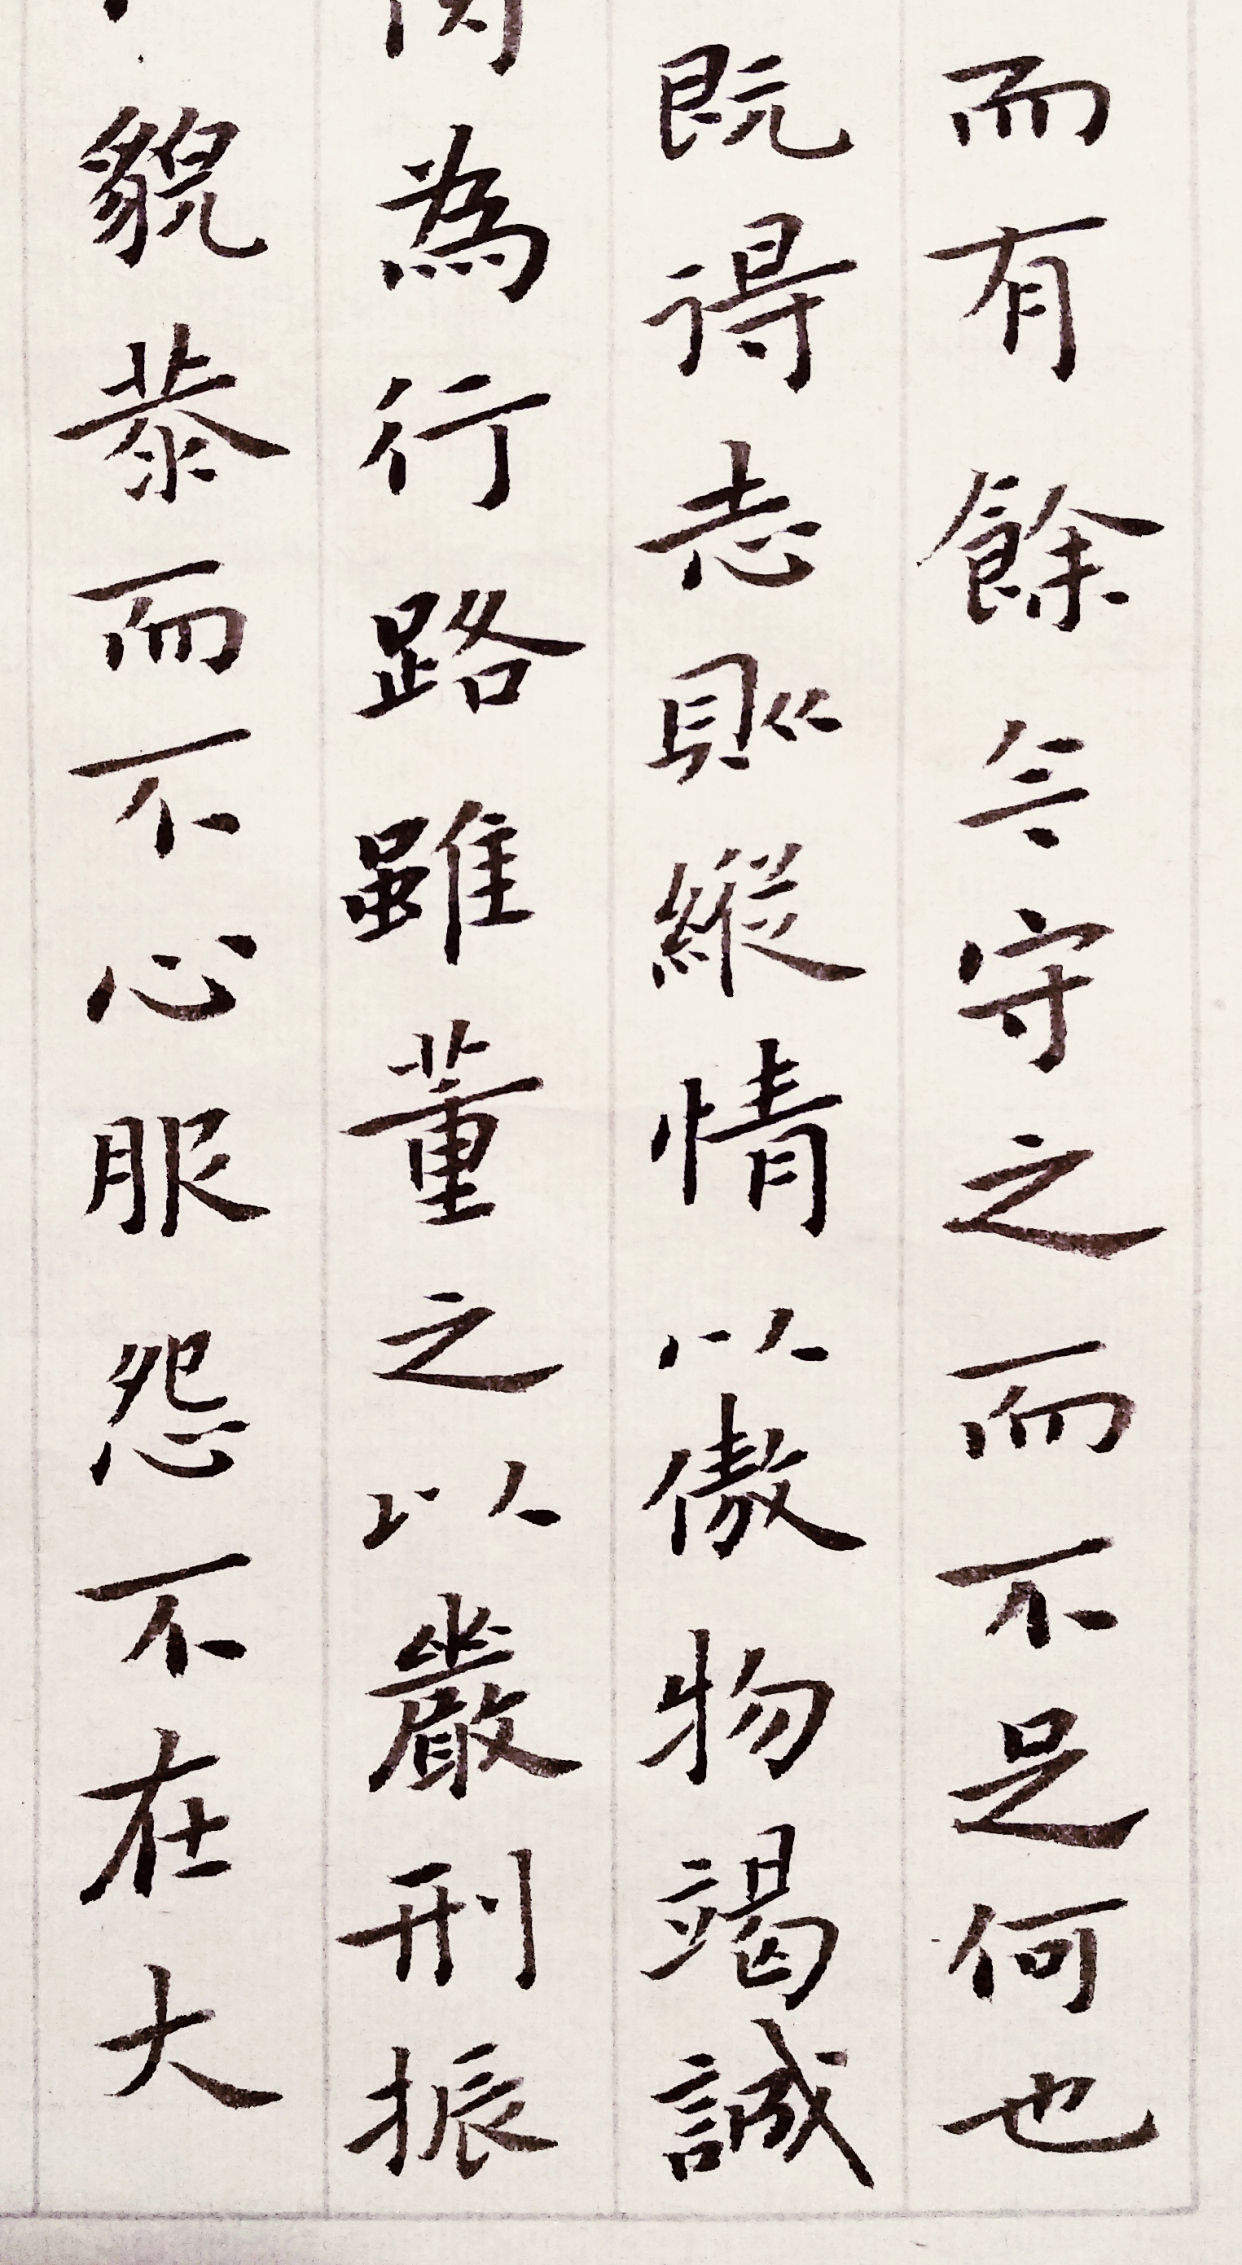 而有餘今守之而不足何也
既得志則縱情以傲物竭誠
為行路雖董之以嚴刑振
貌恭而不心服怨不在大